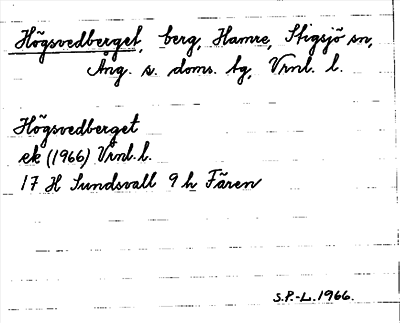 Högsvedberget, berg, Hamre, Stigsjö sn,
Ång. s. doms. tg, Vrnl. l.
Högsvedberget
ek (1966) Vrnl. l.
17 H Sundsvall 9 h Fären
S.P.-L. 1966.